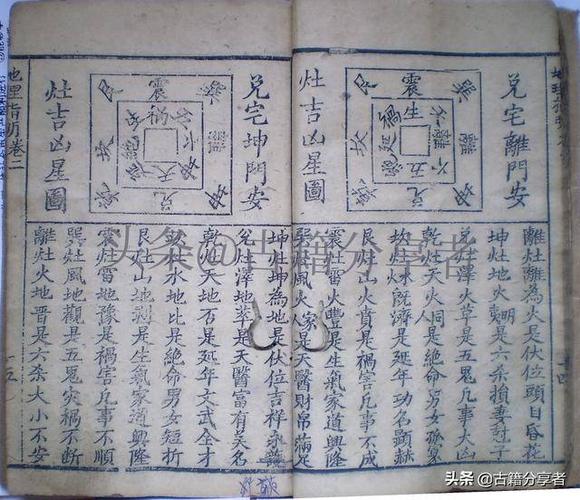 兌宅離門安
震
巽
艮
生
禍
延
五
坎
兌
灶吉凶星圖
離灶離為火是伏位頭目昏花
坤灶地火明是六杀損妻尅子
兌灶澤火革是五鬼凡事大凶
乾灶天火同人是絶命男女
坎灶水火既濟是延年功名顯赫
艮灶山火賁是禍害凡事不成
震灶雷火豐是生氣家道興隆
巽灶風火家人是天醫財帛滿足
兌宅坤門安
震
巽
艮
禍
坎
兌
灶吉凶星圖
坤灶坤為地是伏位吉祥
兌灶澤地萃是天醫富有美名
乾灶天地否是延年文武全才
坎灶水地比是絶命男女短折
艮灶山地剥是生氣家道興隆
震灶雷地豫是禍害凡事不順
巽灶風地觀是五鬼灾禍不断
離灶火地晋是六杀大小不安
卷二
十五
头条@古籍分享者
头条 @古籍分享者